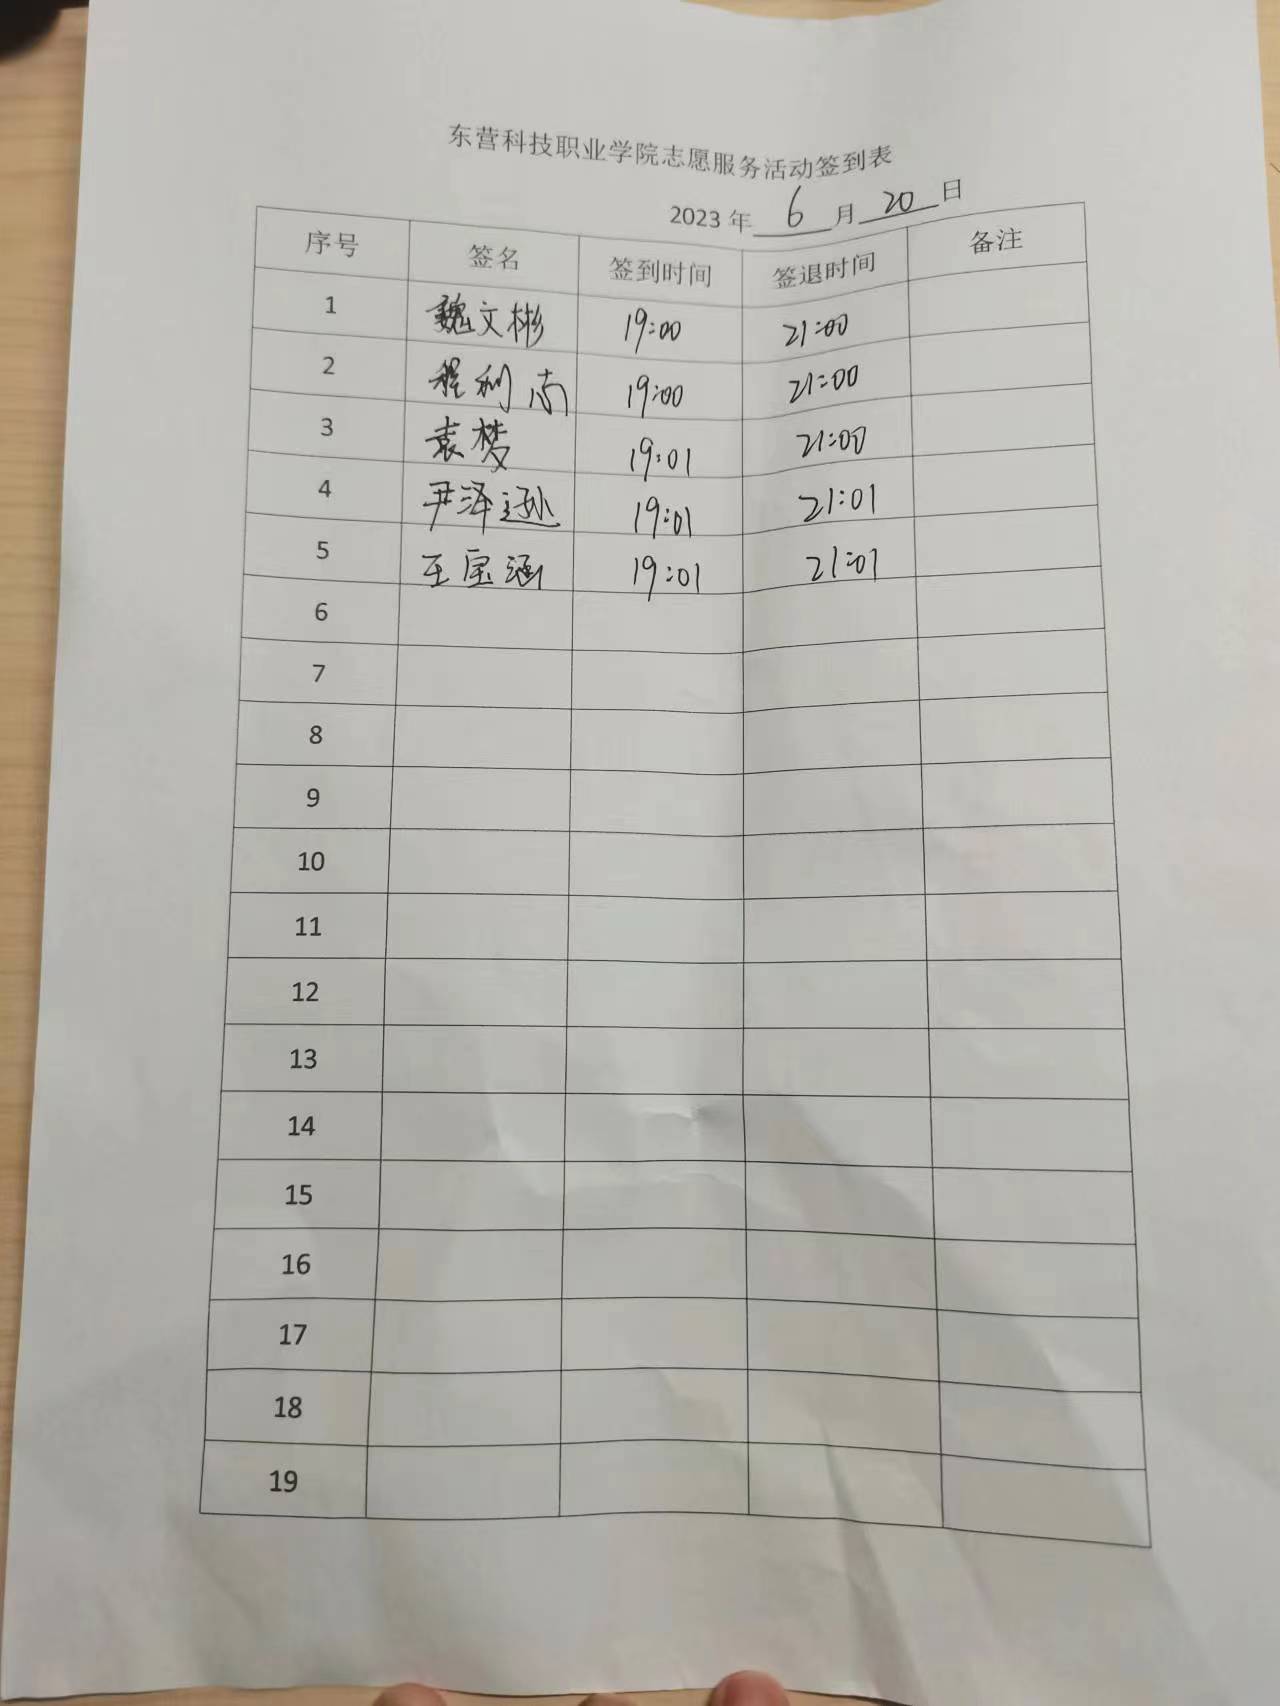 东营科技职业学院志愿服务活动签到表
2023 年 6 月 20 日
序号 签名 签到时间 签退时间 备注
1 魏文彬 19:00 21:00
2 程利南 19:00 21:00
3 袁梦 19:01 21:00
4 尹泽逊 19:01 21:01
5 王宝涵 19:01 21:01
6
7
8
9
10
11
12
13
14
15
16
17
18
19